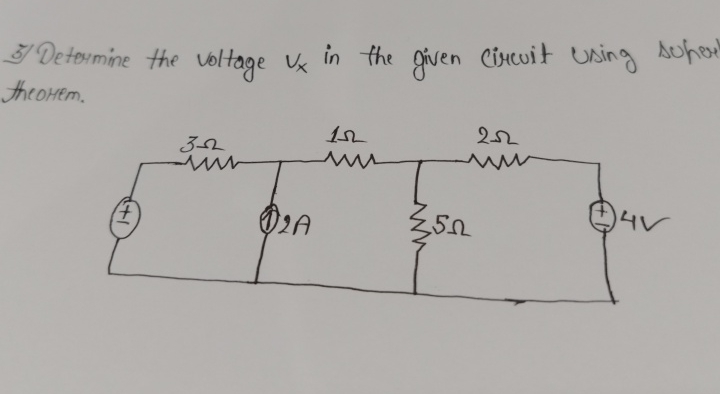 5) Determine the voltage Vx in the given circuit using
theorem.
3Ω 1Ω 2Ω
+ - 2A 5Ω + - 4V